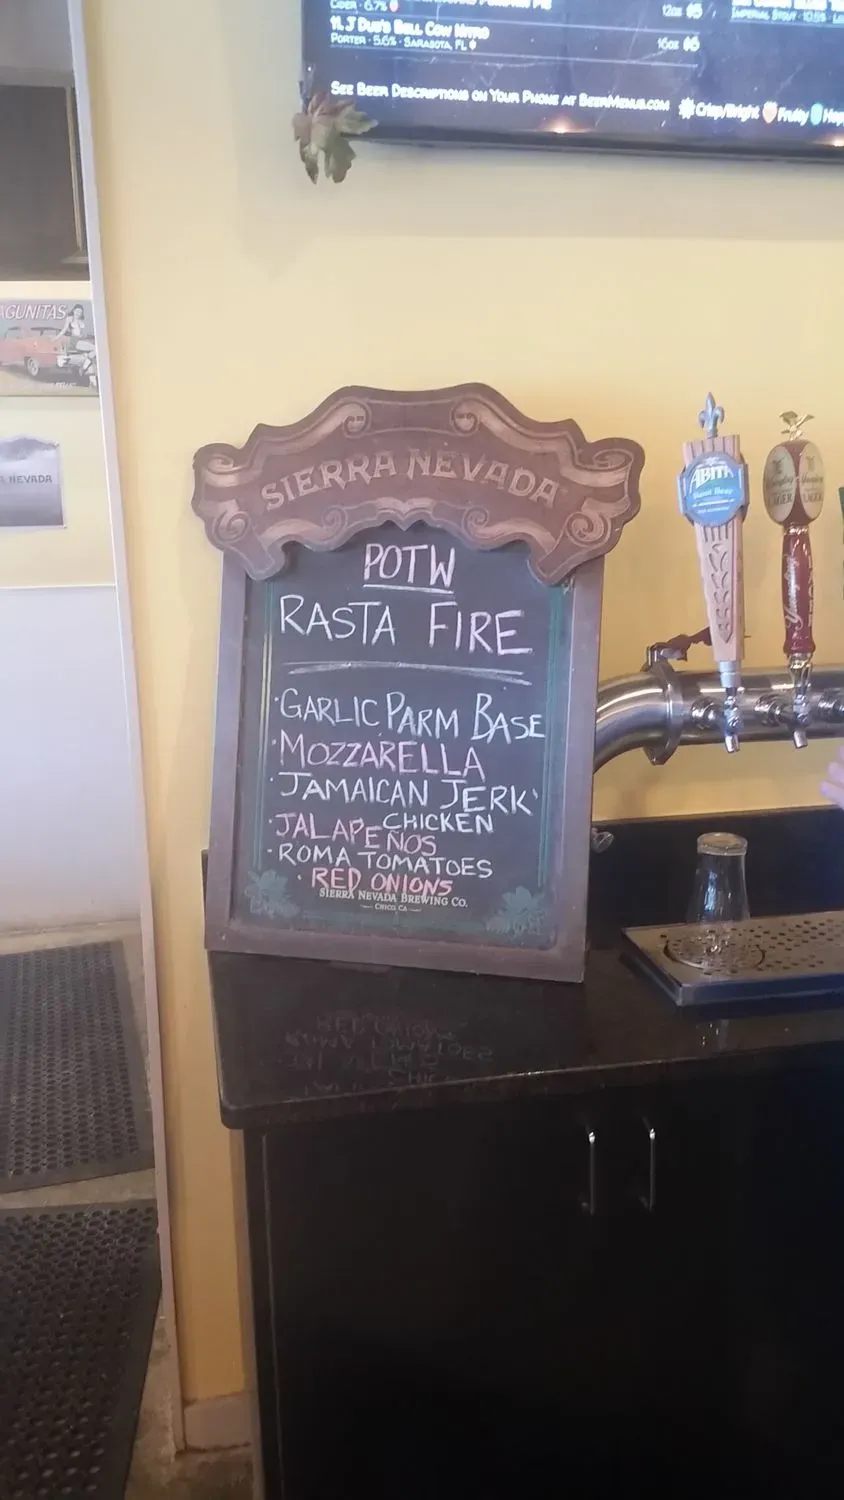 CIDER · 6.7%
12oz $5
11. J DUB'S BELL COW NITRO
PORTER · 5.6% · SARASOTA, FL
16oz $6
IMPERIAL STOUT · 10.5%
SEE BEER DESCRIPTIONS ON YOUR PHONE AT BEERMENUS.COM
Crisp/Bright
Fruity
Hop
AGUNITAS
NEVADA
SIERRA NEVADA
POTW
RASTA FIRE
· GARLIC PARM BASE
· MOZZARELLA
· JAMAICAN JERK
CHICKEN
· JALAPEÑOS
· ROMA TOMATOES
· RED ONIONS
SIERRA NEVADA BREWING CO.
— CHICO, CA —
ABITA
Root Beer
Yuengling
LAGER
Yuengling